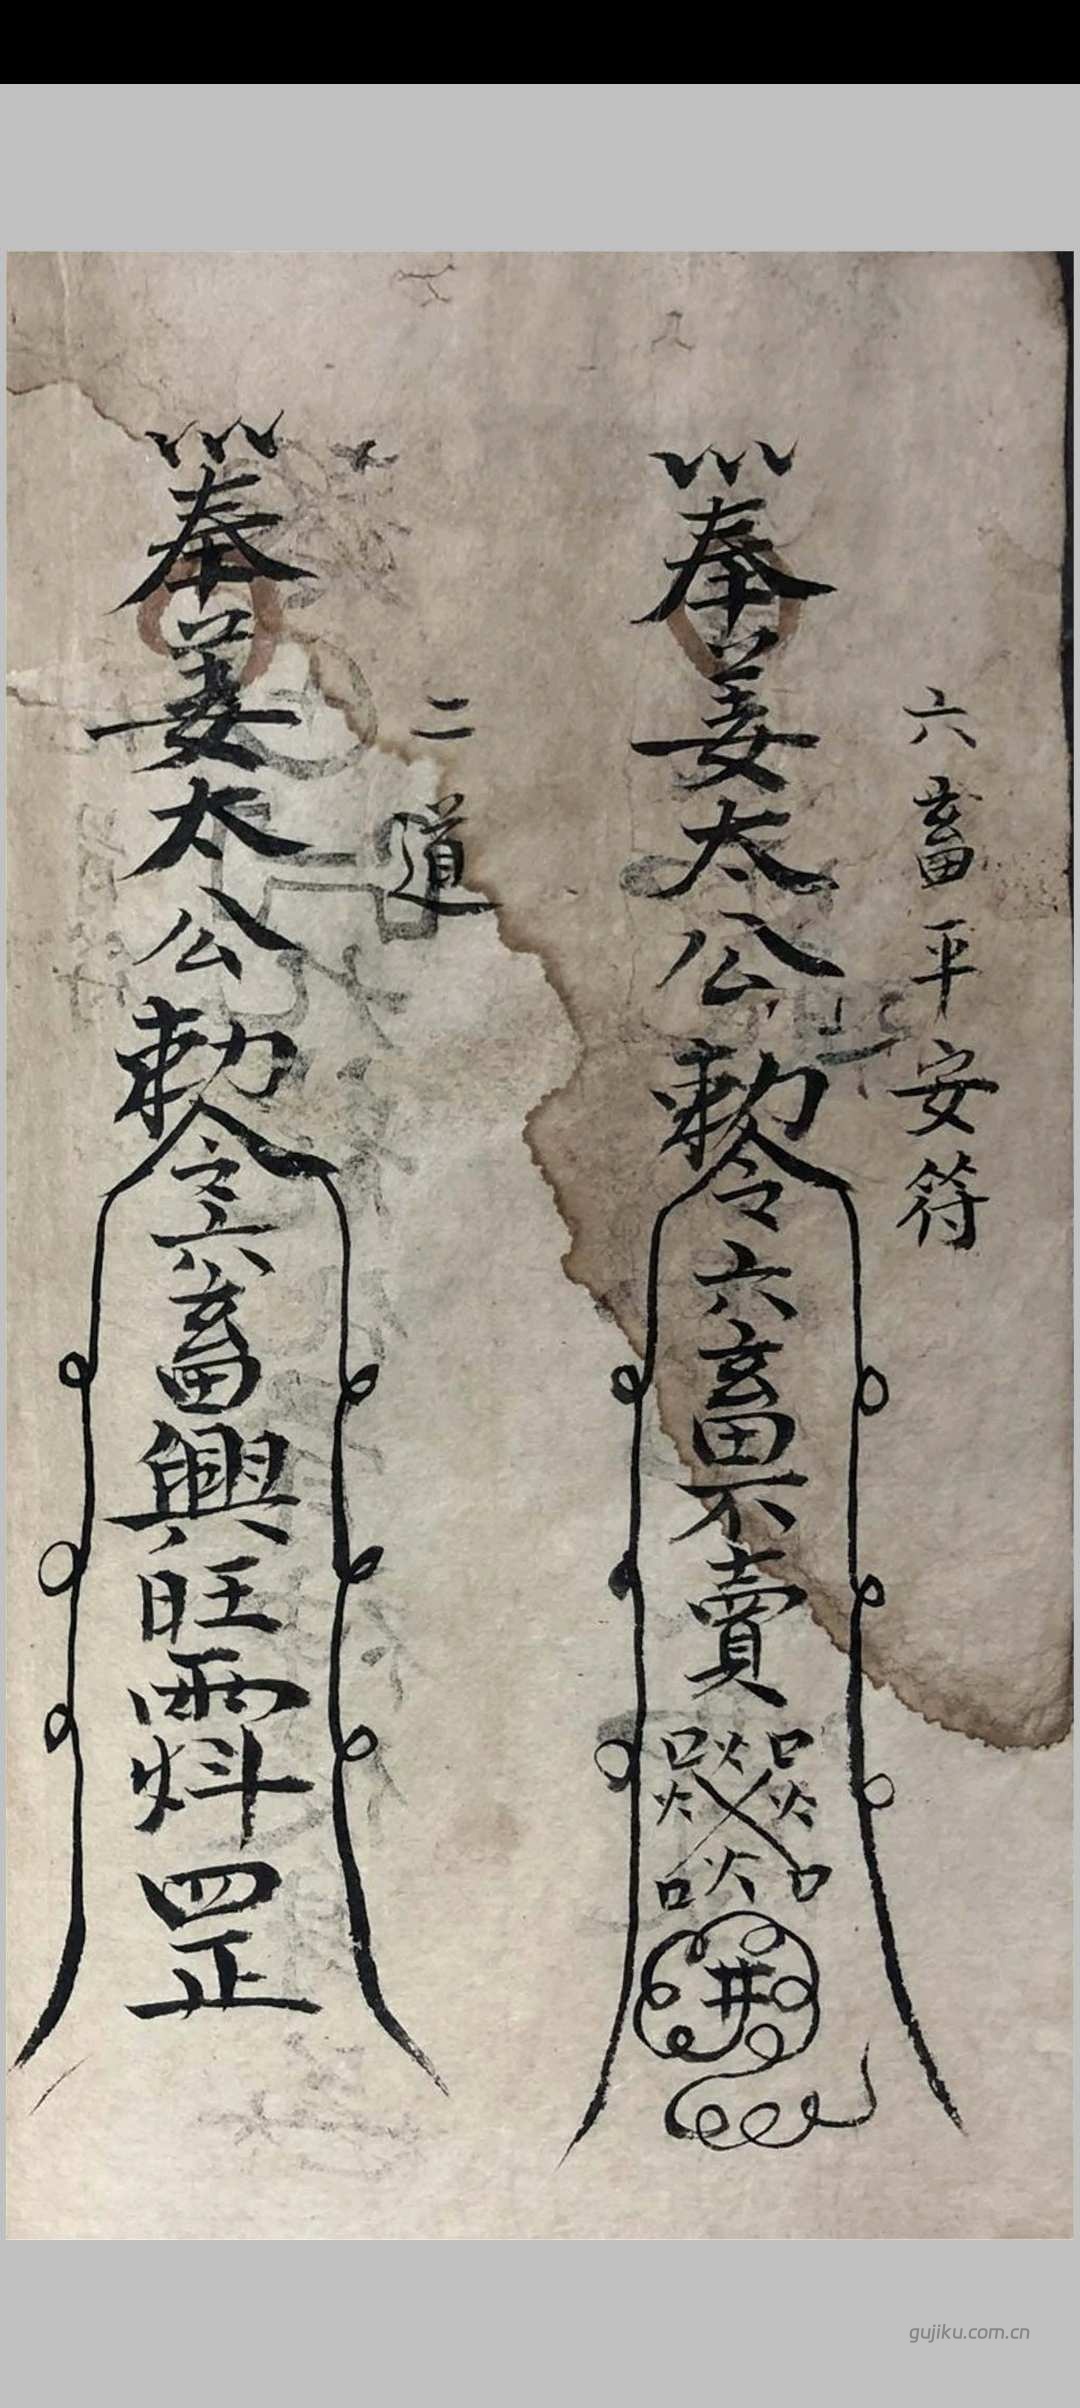 六畜平安符
奉姜太公敕令六畜不賣
井
二道
奉姜太公敕令六畜興旺
罡
gujiku.com.cn